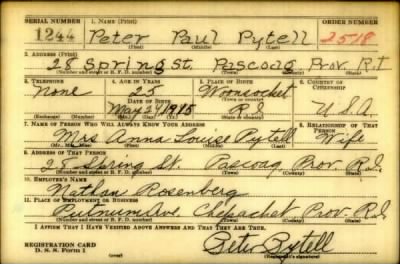 SERIAL NUMBER 1. NAME (Print) ORDER NUMBER
1244 Peter Paul Pytell 2518
(First) (Middle) (Last)
2. ADDRESS (Print)
28 Spring St. Pascoag Prov. R.I
(Number and street or R. F. D. number) (Town) (County) (State)
3. TELEPHONE 4. AGE IN YEARS 5. PLACE OF BIRTH 6. COUNTRY OF CITIZENSHIP
None 25 Woonsocket
DATE OF BIRTH (Town or county)
May 24 1915 R.I. U.S.A
(Exchange) (Number) (Mo.) (Day) (Yr.) (State or country)
7. NAME OF PERSON WHO WILL ALWAYS KNOW YOUR ADDRESS 8. RELATIONSHIP OF THAT PERSON
Mrs Anna Louise Pytell Wife
(Mr., Mrs., Miss) (First) (Middle) (Last)
9. ADDRESS OF THAT PERSON
28 Spring St. Pascoag Prov. R.I.
(Number and street or R. F. D. number) (Town) (County) (State)
10. EMPLOYER'S NAME
Nathan Rosenberg
11. PLACE OF EMPLOYMENT OR BUSINESS
Putnum Ave. Chepachet Prov. R.I.
(Number and street or R. F. D. number) (Town) (County) (State)
I AFFIRM THAT I HAVE VERIFIED ABOVE ANSWERS AND THAT THEY ARE TRUE.
REGISTRATION CARD Peter Pytell
D. S. S. Form 1 (over) (Registrant's signature)